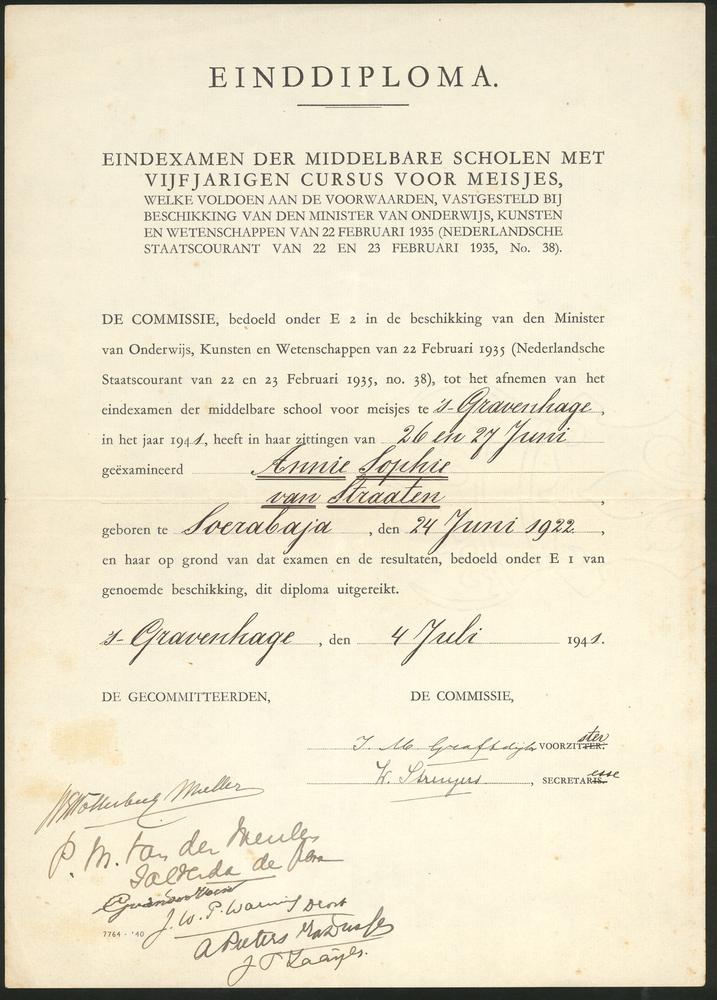 EINDDIPLOMA.
EINDEXAMEN DER MIDDELBARE SCHOLEN MET
VIJFJARIGEN CURSUS VOOR MEISJES,
WELKE VOLDOEN AAN DE VOORWAARDEN, VASTGESTELD BIJ
BESCHIKKING VAN DEN MINISTER VAN ONDERWIJS, KUNSTEN
EN WETENSCHAPPEN VAN 22 FEBRUARI 1935 (NEDERLANDSCHE
STAATSCOURANT VAN 22 EN 23 FEBRUARI 1935, No. 38).
DE COMMISSIE, bedoeld onder E 2 in de beschikking van den Minister
van Onderwijs, Kunsten en Wetenschappen van 22 Februari 1935 (Nederlandsche
Staatscourant van 22 en 23 Februari 1935, no. 38), tot het afnemen van het
eindexamen der middelbare school voor meisjes te 's-Gravenhage,
in het jaar 1941, heeft in haar zittingen van 26 en 27 Juni
geëxamineerd Annie Sophie
van Straaten,
geboren te Soerabaja, den 24 Juni 1922,
en haar op grond van dat examen en de resultaten, bedoeld onder E 1 van
genoemde beschikking, dit diploma uitgereikt.
's-Gravenhage, den 4 Juli 1941.
DE GECOMMITTEERDEN, DE COMMISSIE,
J. M. Graftdijk VOORZITTER. ster
W. Struyers, SECRETARIS. esse
Muller
P. M. van der Meulen
de
J. W. P.
A Pieters
J
7764 - '40